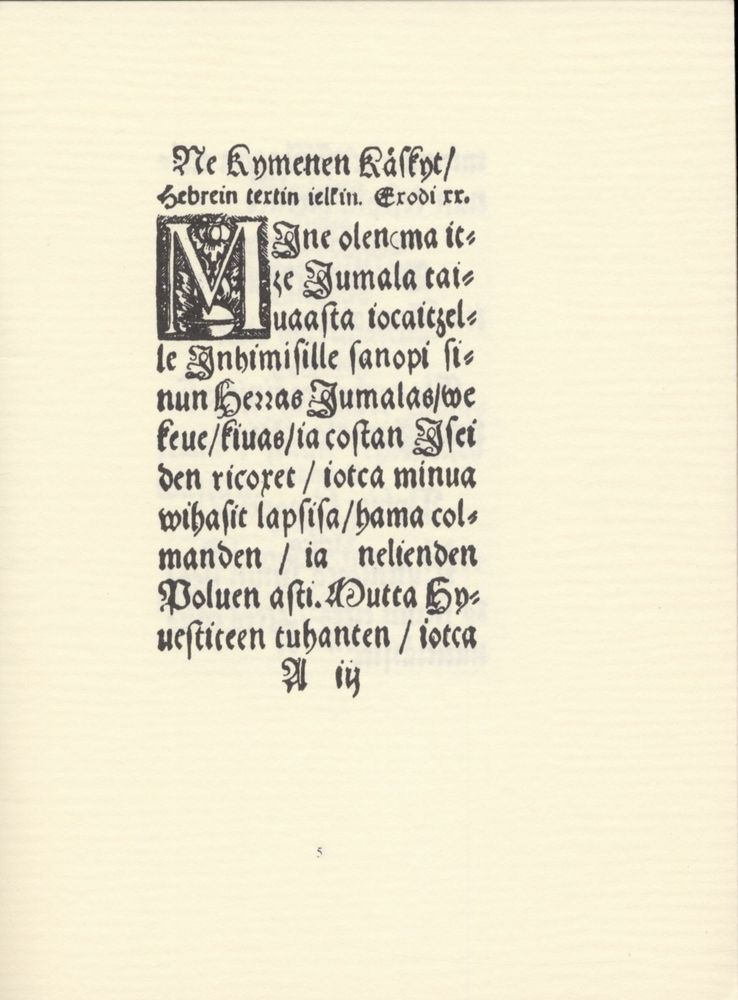 Ne Kymenen Käskyt/
Hebrein textin ielkin. Exodi xx.
MIne olen (ma it⸗
ze Jumala tai⸗
uaasta iocaitzel⸗
le Inhimisille sanopi si⸗
nun Herras Jumalas/we
keue/kiuas/ia costan Isei
den ricoxet / iotca minua
wihasit lapsisa/hama col⸗
manden / ia nelienden
Poluen asti. Mutta Hy⸗
uestiteen tuhanten / iotca
A iij
5